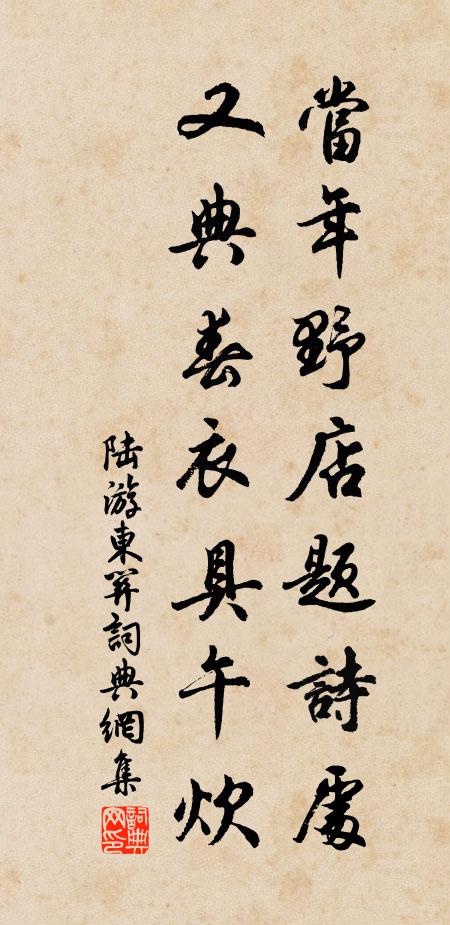 當年野店題詩處
又典春衣具午炊
陸游東笄詞典網集
詞典网印